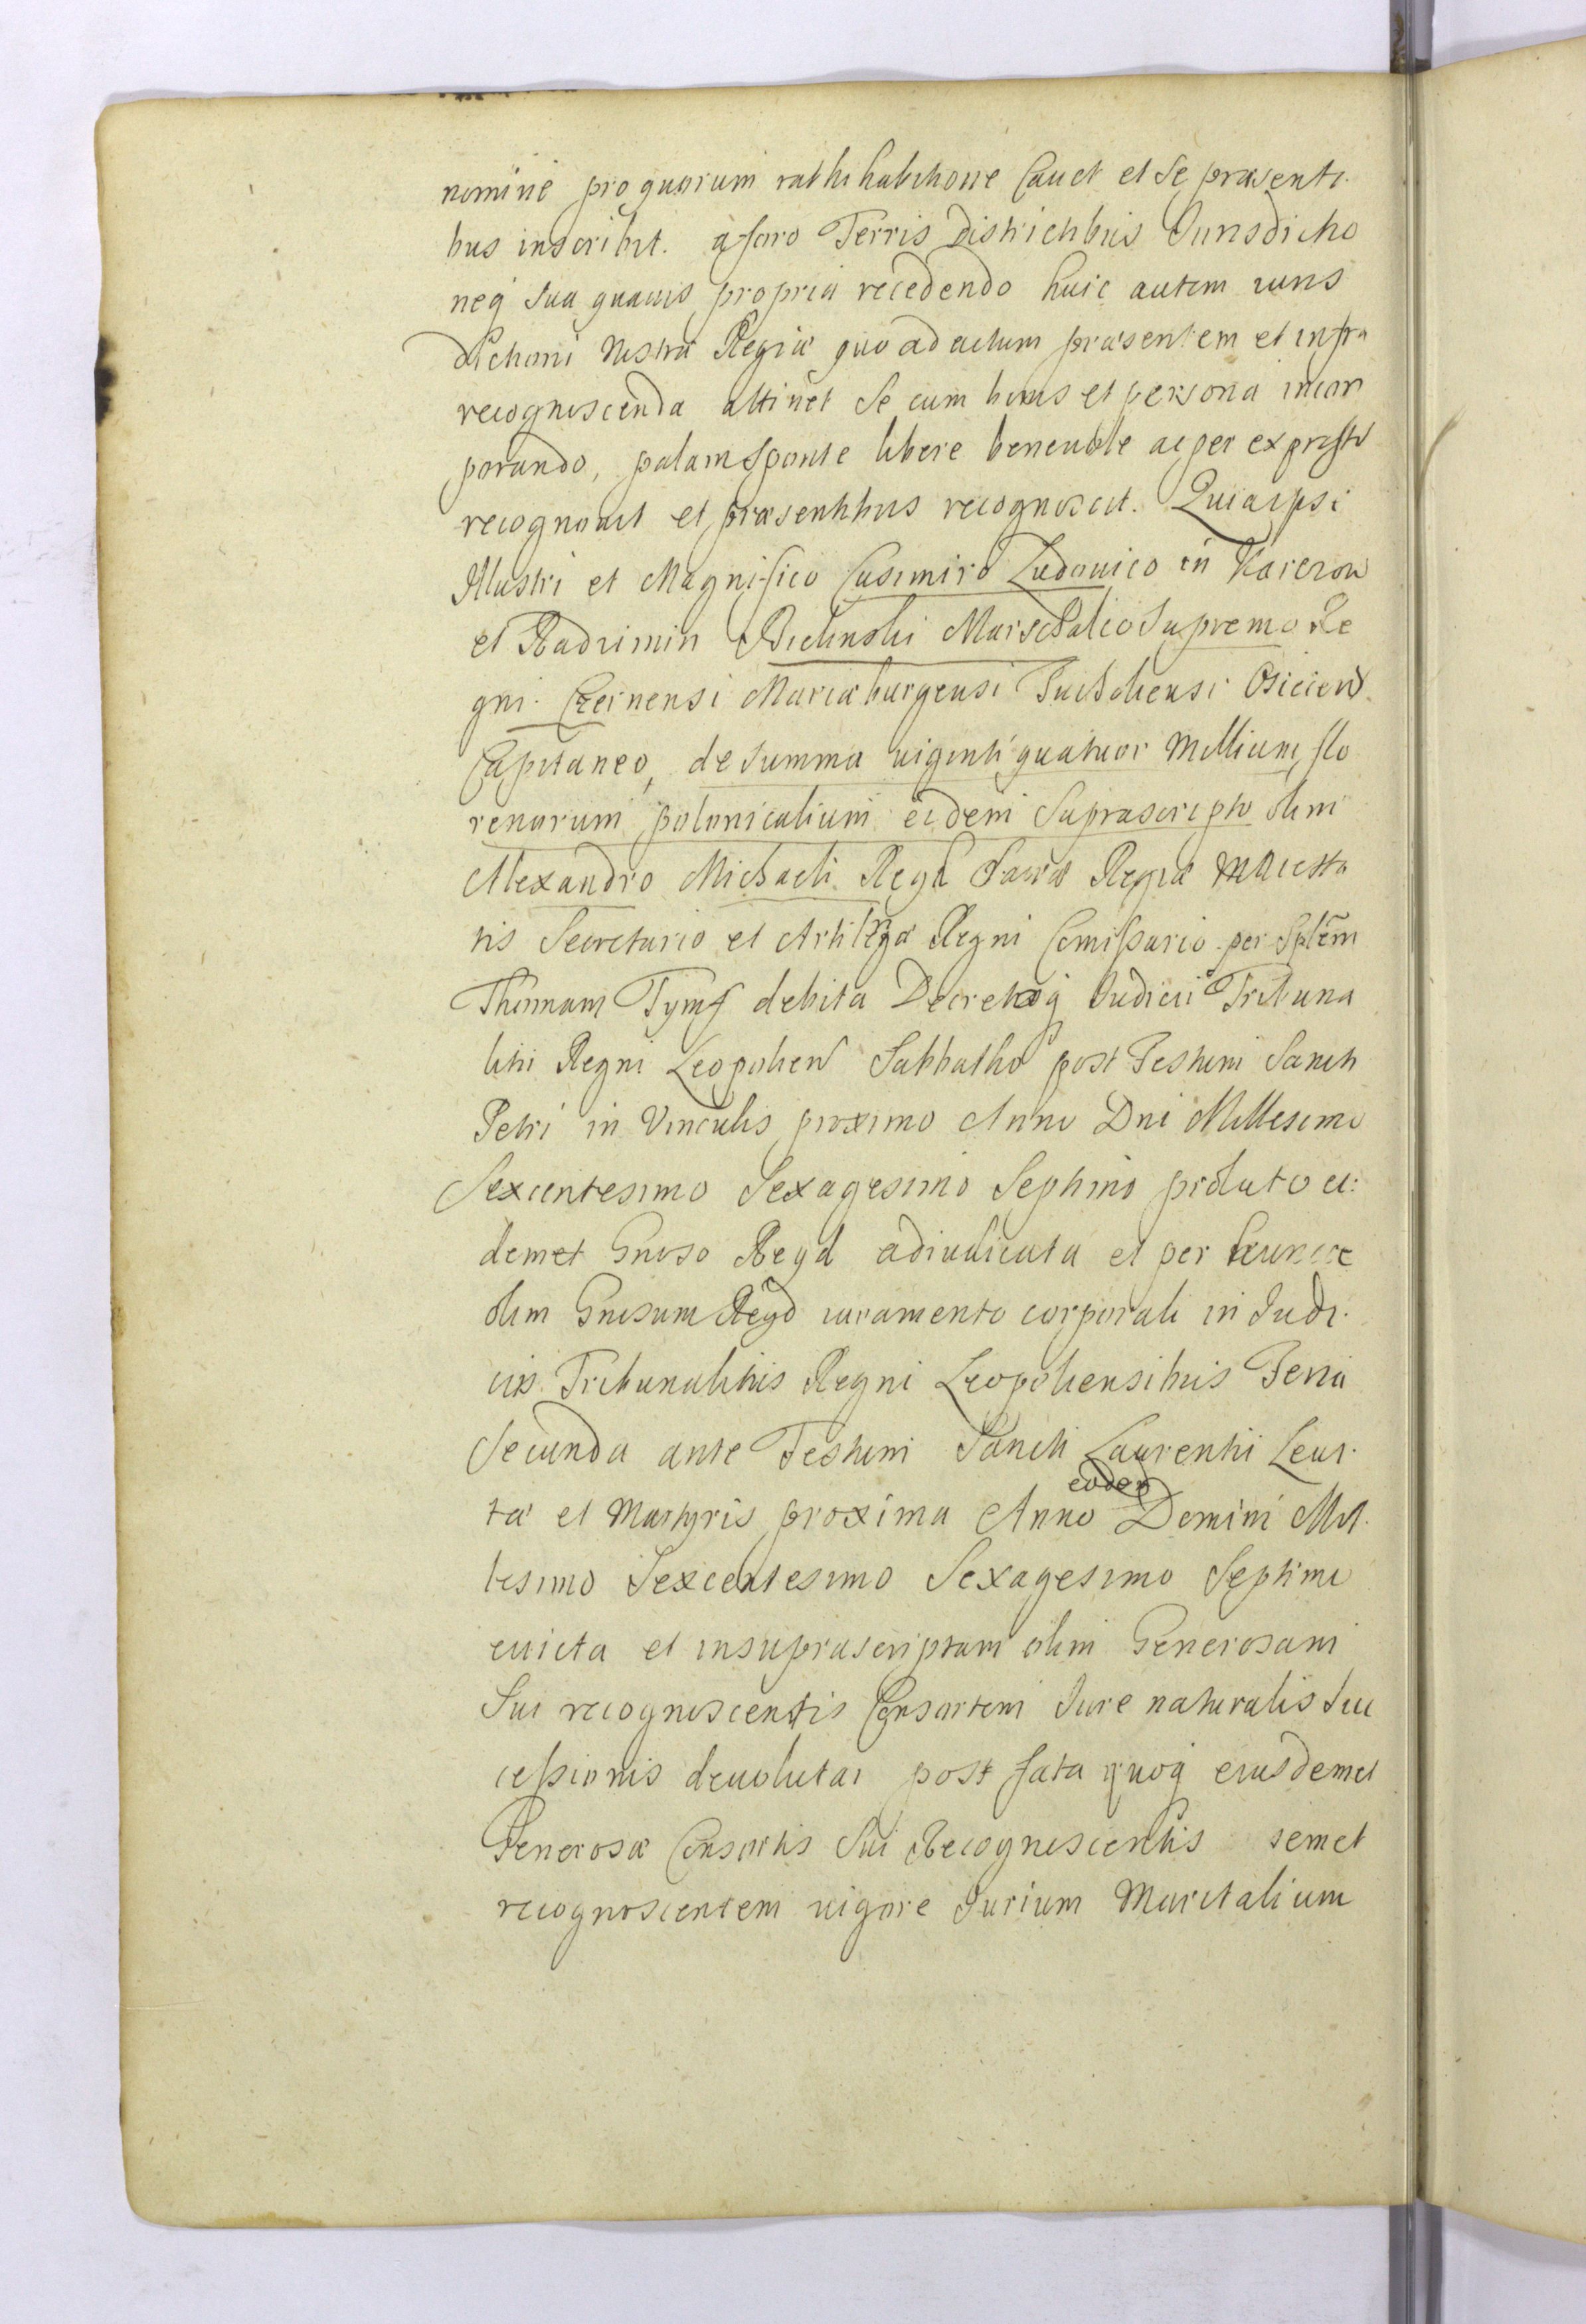 nomine pro quorum rathihabitione Cauet et se præsenti
bus inscribit. à foro Terris Districtibus Iurisdictio
neq sua quauis propria recedendo huic autem iuris
dictioni Nostræ Regiæ quo ad actum præsentem et infra
recognoscenda attinet se cum bonis et persona incor
porando, palam sponte libere beneuole ac per expressum
recognouit et præsentibus recognoscit. Quia ipsi
Illustri et Magnifico Casimiro Ludouico in Karczow
et Radzimin Bielinski Marschalco Supremo Re
gni. Czernensi Mariæburgensi Tucholiensi Osiecen
Capitaneo, de summa uiginti quatuor Millium flo
renorum polonicalium eidem Suprascripto olim
Alexandro Michaeli Regd Sacræ Regiæ Maiesta
tis Secretario et Artileryæ Regni Comissario per Sptem
Thomam Tymf debita Decretoq Iudicii Tribuna
litii Regni Leopolien Sabbatho post Festum Sancti
Petri in Vinculis proximo Anno Dni Millesimo
Sexcentesimo Sexagesimo Septimo prolato ei:
demet Gnoso Regd adiudicata et per hunc
olim Gnosum Regd iuramento corporali in Iudi.
ciis Tribunalitiis Regni Leopoliensibus Feria
Secunda ante Festum Sancti Laurentii Leui.
eodem
tæ et Martyris proxima Anno Domini Mil.
lesimo Sexcentesimo Sexagesimo Septimo
euicta et in suprascriptam olim Generosam
Sui recognoscentis Consortem Iure naturalis suc
cessionis deuoluta post fata quoq eiusdemet
Generosæ Consortis Sui Recognoscentis semet
recognoscentem uigore Iurium Maritalium